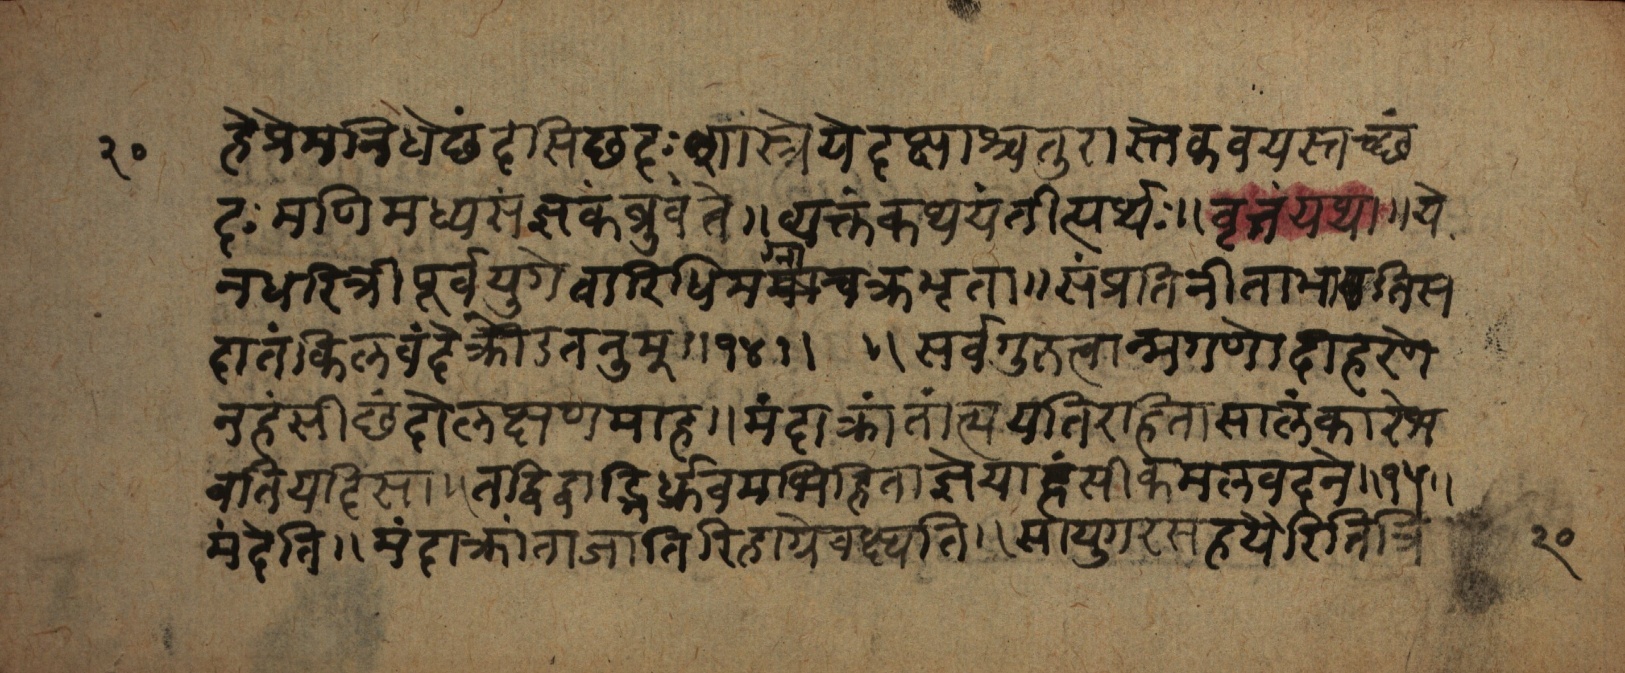 हेप्रेमनिधेछंदसिछंदःशास्त्रेयेदक्षाश्चतुरास्तेकवयस्तच्छं
दःमणिमध्यसंज्ञकंब्रुवंते॥व्यक्तंकथयंतीत्यर्थः॥वृत्तंयथा॥ये
नधरित्रीपूर्वयुगेवारिधिमग्नाचक्रभृता॥संप्रतिनीताभातिस
दातंकिलवंदेक्रोडतनुम्॥१४॥ ॥सर्वगुरुत्वान्मगणोदाहरणे
नहंसीछंदोलक्षणमाह॥मंदाक्रांतांत्ययतिरहितासालंकारेभ
वतियदिसा॥तद्विद्वद्भिर्ध्रुवमभिहिताज्ञेयाहंसीकमलवदने॥१५॥
मंदेति॥मंदाक्रांताजातिरिहाग्रेवक्ष्यति॥सायुगरसहयैरितित्रि
२०
२०